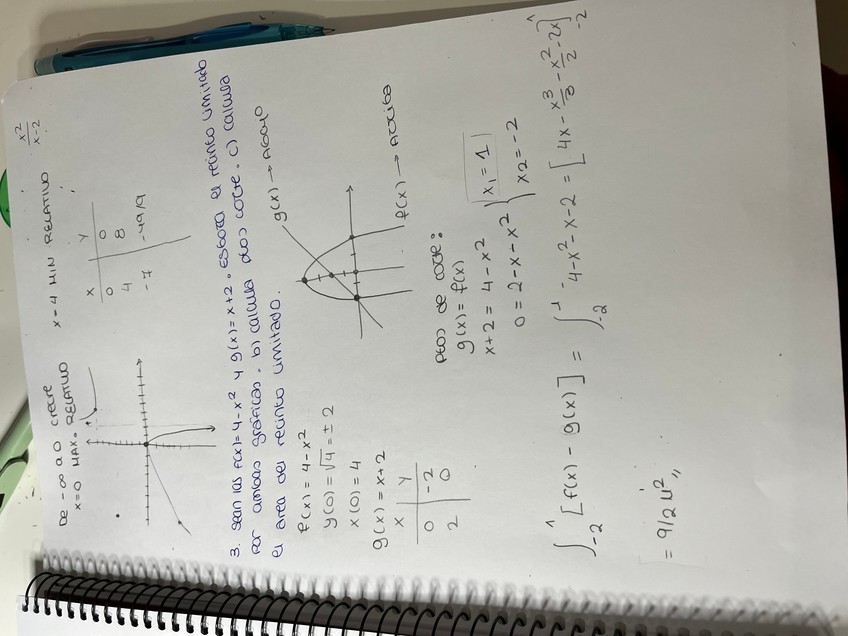 De -∞ a 0 crece
x=0 MAX. RELATIVO
x=4 MIN RELATIVO
x²/x-2
x | y
0 | 0
4 | 8
-7 | -49/9
3. Sean las f(x)=4-x² y g(x)=x+2. Esboza el recinto limitado
por ambas gráficas. b) calcula ptos corte. c) calcula
el area del recinto limitado.
f(x)=4-x²
y(0)=√4=±2
x(0)=4
g(x)=x+2
x | y
0 | -2
2 | 0
g(x) → Abajo
f(x) → Arriba
Ptos de corte:
g(x)=f(x)
x+2=4-x²
0=2-x-x² { x₁=1
x₂=-2
∫₋₂¹ [f(x)-g(x)] = ∫₋₂¹ 4-x²-x-2 = [4x-x³/3-x²/2-2x]₋₂¹
= 9/2 u²,,